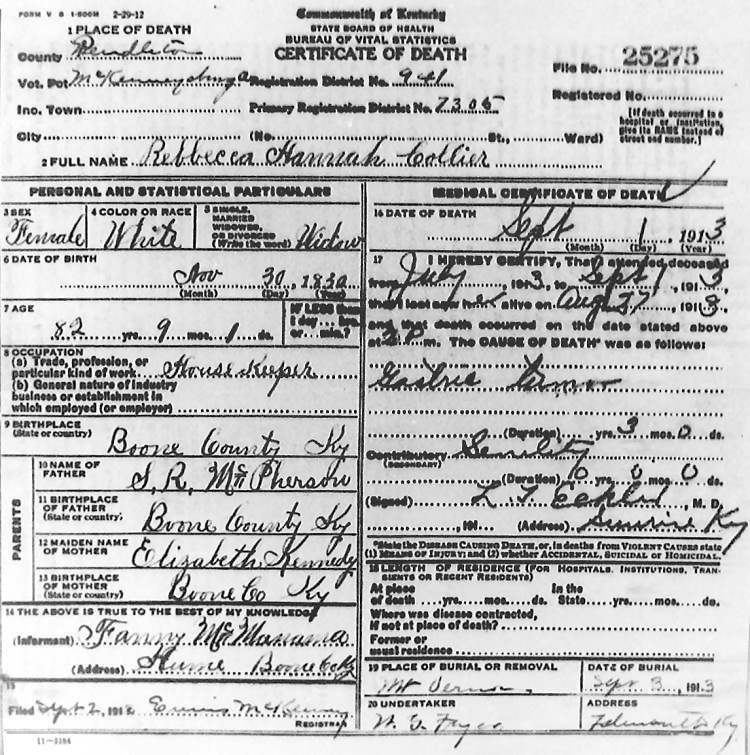 FORM V S 1-500M 2-29-12
Commonwealth of Kentucky
STATE BOARD OF HEALTH
BUREAU OF VITAL STATISTICS
CERTIFICATE OF DEATH
1 PLACE OF DEATH
County Pendleton
File No. 25275
Vot. Pct Registration District No. 941
Registered No.
Inc. Town Primary Registration District No. 7305
[If death occurred in a hospital or institution, give its NAME instead of street and number.]
City (No. St., Ward)
2 FULL NAME Rebbecca Hannah Collier
PERSONAL AND STATISTICAL PARTICULARS
3 SEX Female
4 COLOR OR RACE White
5 SINGLE, MARRIED WIDOWED, OR DIVORCED (Write the word) Widow
6 DATE OF BIRTH
Nov 30, 1830
(Month) (Day) (Year)
7 AGE
82 yrs. 9 mos. 1 ds.
IF LESS than 1 day ... hrs. or ... min.?
8 OCCUPATION
(a) Trade, profession, or particular kind of work House Keeper
(b) General nature of industry business or establishment in which employed (or employer)
9 BIRTHPLACE
(State or country)
Boone County Ky
PARENTS
10 NAME OF FATHER S. R. McPherson
11 BIRTHPLACE OF FATHER (State or country) Boone County Ky
12 MAIDEN NAME OF MOTHER Elizabeth Kennedy
13 BIRTHPLACE OF MOTHER (State or country) Boone Co Ky
14 THE ABOVE IS TRUE TO THE BEST OF MY KNOWLEDGE
(Informant) Fanny McManama
(Address) Hume Boone Co Ky
15
Filed Sept 2, 191 McKenney
REGISTRAR
11-3184
MEDICAL CERTIFICATE OF DEATH
16 DATE OF DEATH
Sept 1, 1913
(Month) (Day) (Year)
17 I HEREBY CERTIFY, That I attended deceased
from July, 1913, to Sept 1, 1913
that I last saw her alive on Aug 27, 1913
and that death occurred on the date stated above
at m. The CAUSE OF DEATH* was as follows:
Gastric
(Duration) yrs. 3 mos. 0 ds.
Contributory Senility
(SECONDARY)
(Duration) 0 yrs. 0 mos. 0 ds.
(Signed) M. D.
, 191 (Address) Sunrise Ky
*State the DISEASE CAUSING DEATH, or, in deaths from VIOLENT CAUSES state (1) MEANS OF INJURY; and (2) whether ACCIDENTAL, SUICIDAL or HOMICIDAL.
18 LENGTH OF RESIDENCE (FOR HOSPITALS, INSTITUTIONS, TRANSIENTS OR RECENT RESIDENTS)
At place of death yrs. mos. ds. In the State yrs. mos. ds.
Where was disease contracted,
If not at place of death?
Former or usual residence
19 PLACE OF BURIAL OR REMOVAL
Mt Vernon
DATE OF BURIAL
Sept 3, 1913
20 UNDERTAKER
ADDRESS
Falmouth Ky